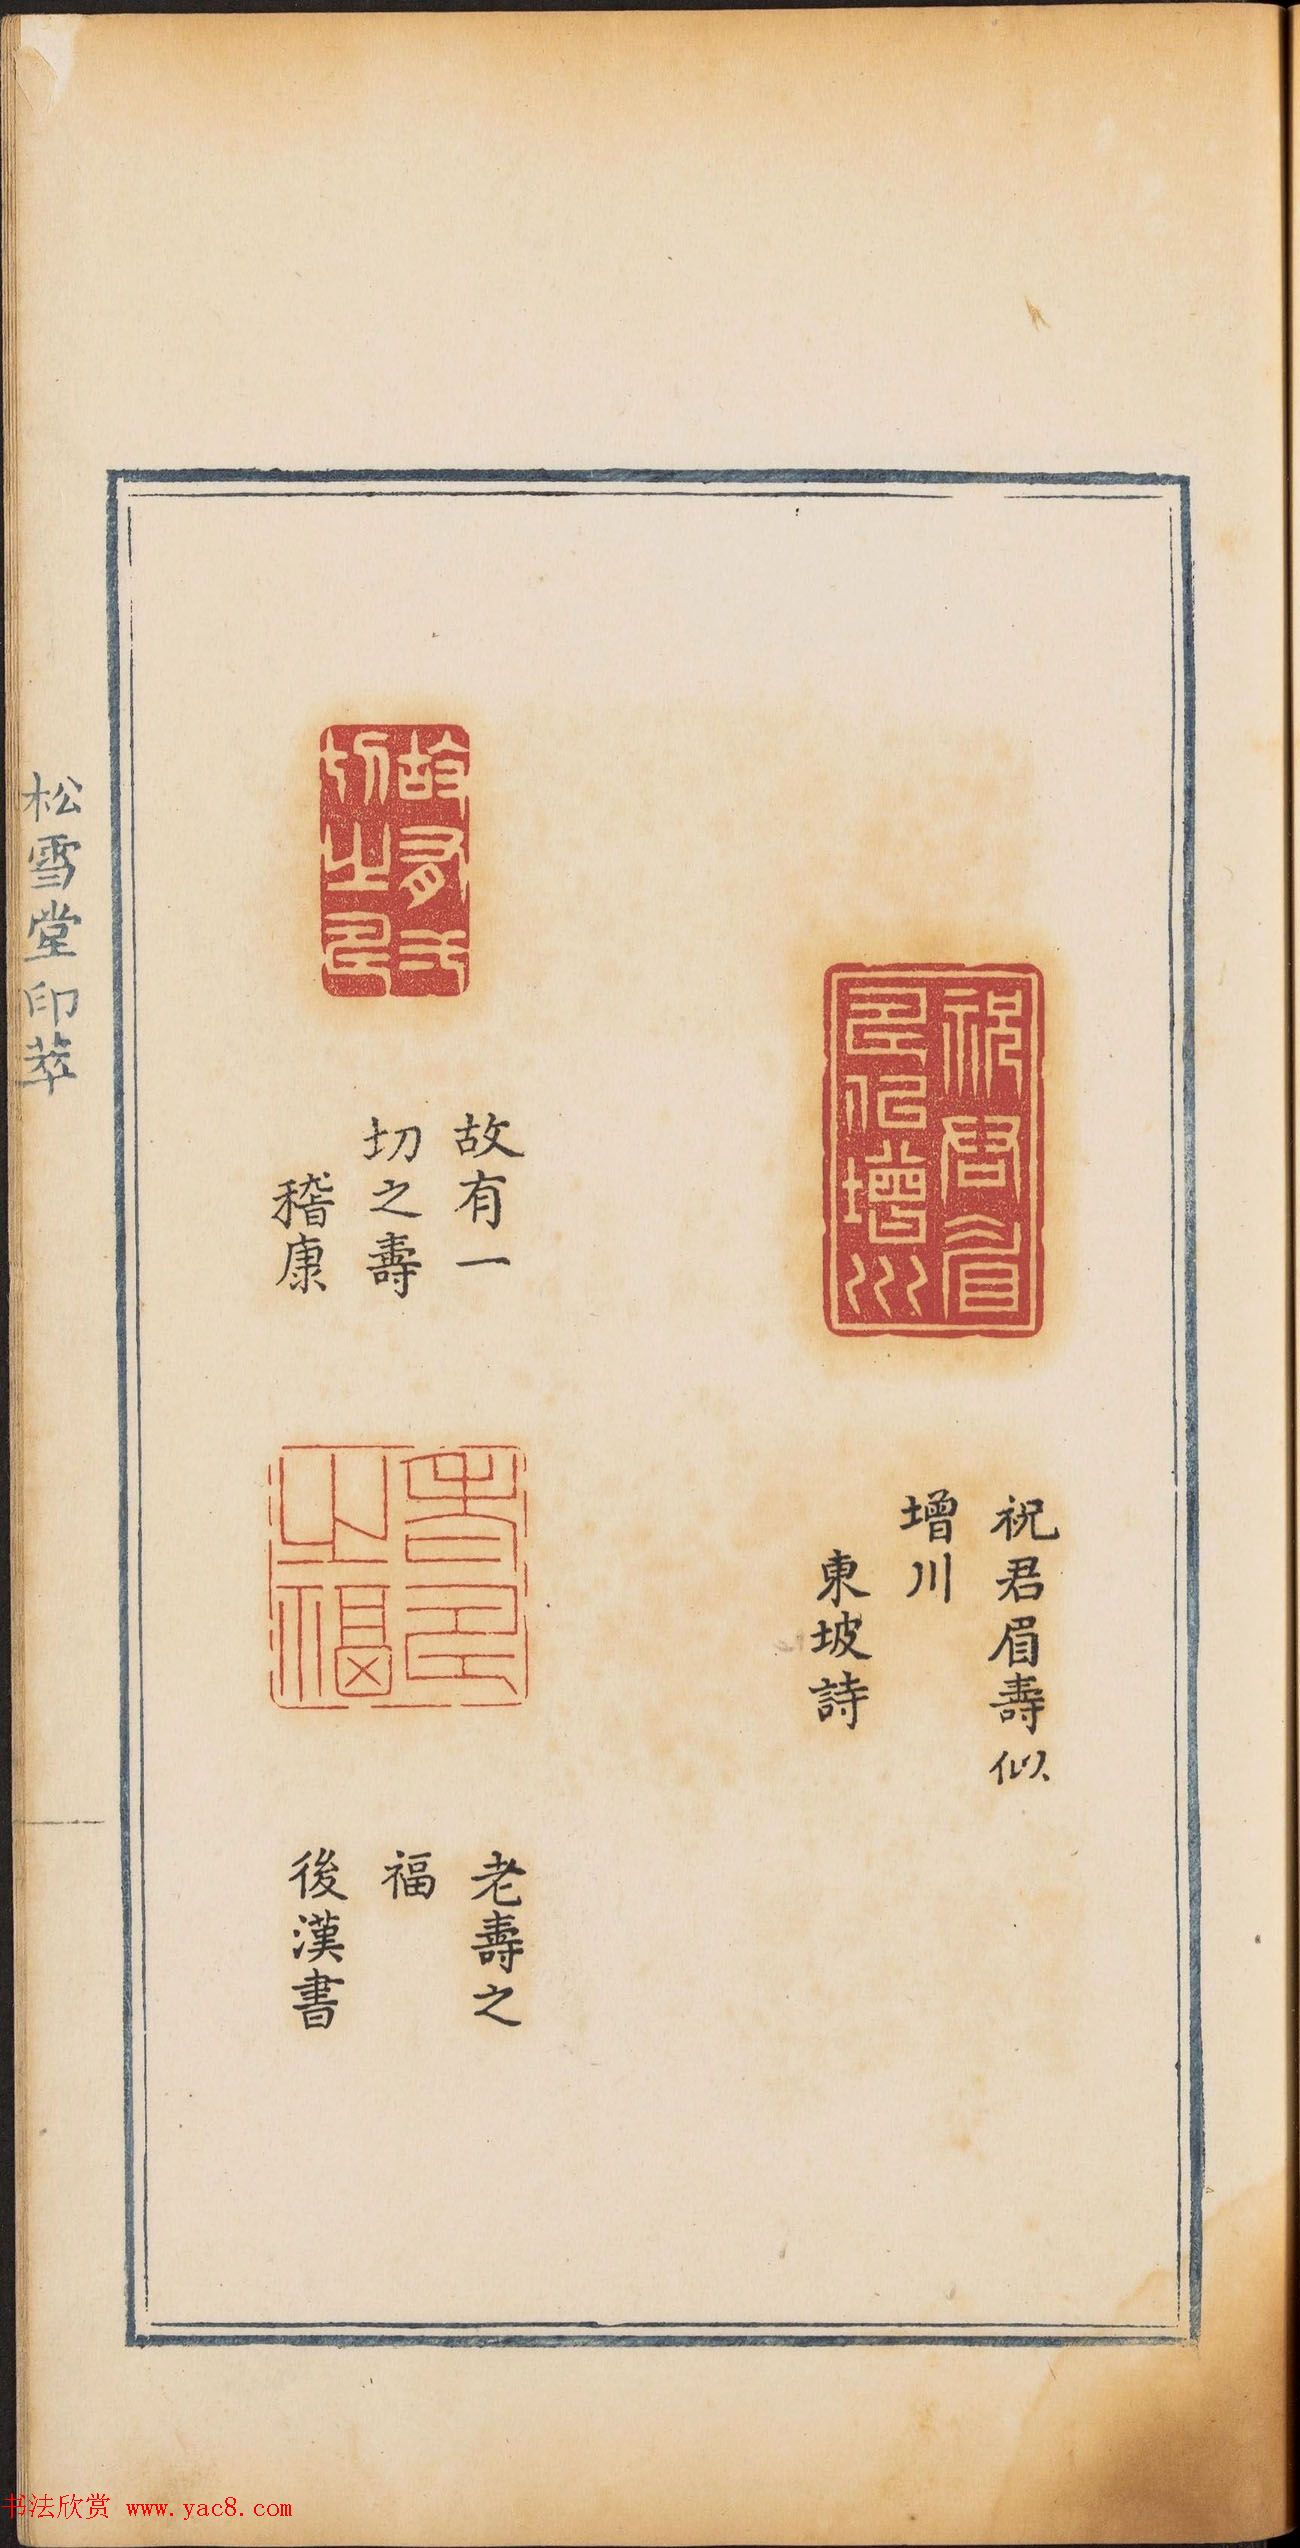 祝君眉壽似增川
祝君眉壽似
增川
東坡詩
故有一切之壽
故有一
切之壽
稽康
老壽之福
老壽之
福
後漢書
松雪堂印萃
书法欣赏 www.yac8.com